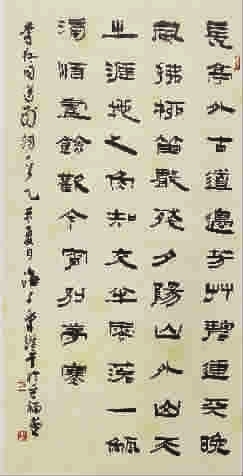 長亭外古道邊芳艸碧連天晚
風拂柳笛聲殘夕陽山外山天
之涯地之角知交半零落一瓢
濁酒盡餘歡今宵別夢寒
乙未夏月海上